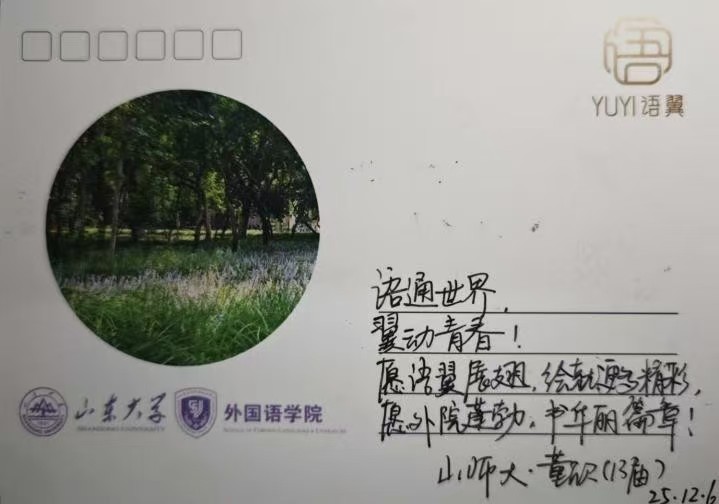 语
YUYI 语翼
语通世界,
翼动青春!
愿语翼展翅,绘就更多精彩,
愿外院蓬勃,书华丽篇章!
山师大·董欣(13届)
25.12.6
山东大学
SHANDONG UNIVERSITY
外国语学院